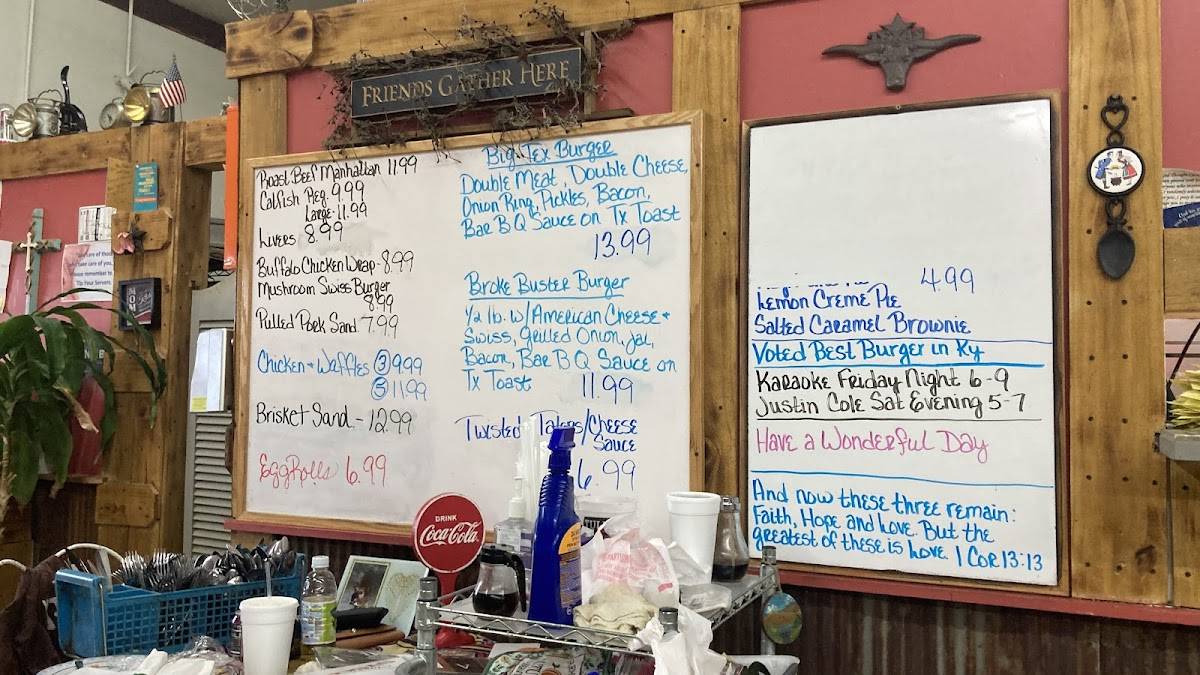 FRIENDS GATHER HERE
Roast Beef Manhattan 11.99
Catfish Reg. 9.99
Large-11.99
Livers 8.99
Buffalo Chicken Wrap-8.99
Mushroom Swiss Burger
8.99
Pulled Pork Sand 7.99
Chicken + Waffles ③ 9.99
⑤ 11.99
Brisket Sand - 12.99
EggRolls 6.99
Big Tex Burger
Double Meat, Double Cheese,
Onion Ring, Pickles, Bacon,
Bar B Q Sauce on Tx Toast
13.99
Broke Buster Burger
1/2 lb. w/American Cheese +
Swiss, Grilled Onion, Jal,
Bacon, Bar B Q Sauce on
Tx Toast 11.99
Twisted Taters/Cheese
Sauce
6.99
4.99
Lemon Creme Pie
Salted Caramel Brownie
Voted Best Burger in Ky
Karaoke Friday Night 6-9
Justin Cole Sat Evening 5-7
Have a Wonderful Day
And now these three remain:
Faith, Hope and Love. But the
greatest of these is Love. 1 Cor 13:13
MOM
take care of you,
please remember to
Tip Your Servers.
DRINK
Coca-Cola